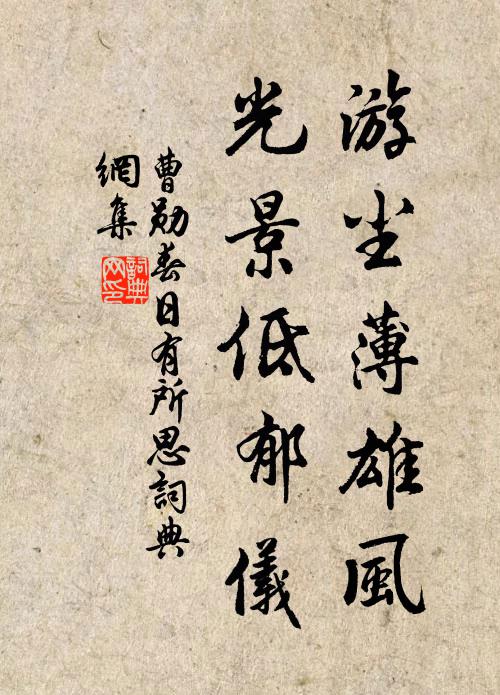 游尘薄雄風
光景低郁儀
曹勛春日有所思詞典
網集
詞典网印